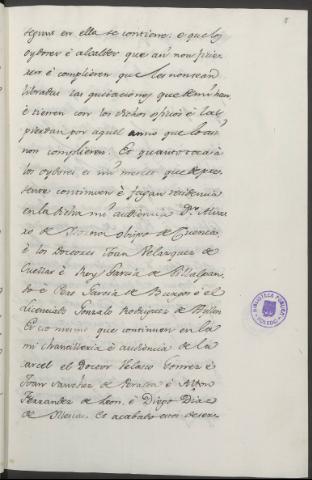 segunt en ella se contiene: e que los
oydores è alcaldes que asi non fizie
ren è complieren que les non sean
libradas las quitaciones que de mi han,
è tienen con los dichos oficios è las
pierdan por aquel anno que lo asi
non complieren. Et quanto toca à
los oydores, es mi merced que de pre
sente continuen è fagan residencia
en la dicha mi audiencia Dn. Alva
ro de Osorna obispo de Cuenca,
è los Doctores Joan Velazquez de
Cuellar è Roy Garcia de Villalpan
do è Pero Garcia de Burgos è el
Licenciado Gonzalo Rodriguez de Ayllon
Et eso mesmo que continuen en la
mi Chancilleria è audiencia de la
carcel el Doctor Velasco Gomez è
Joan Sanchez de Peralta è Alfon
Ferrandez de Leon, è Diego Diaz
de Illescas. Et acabado estos
BIBLIOTECA PUBLICA
TOLEDO